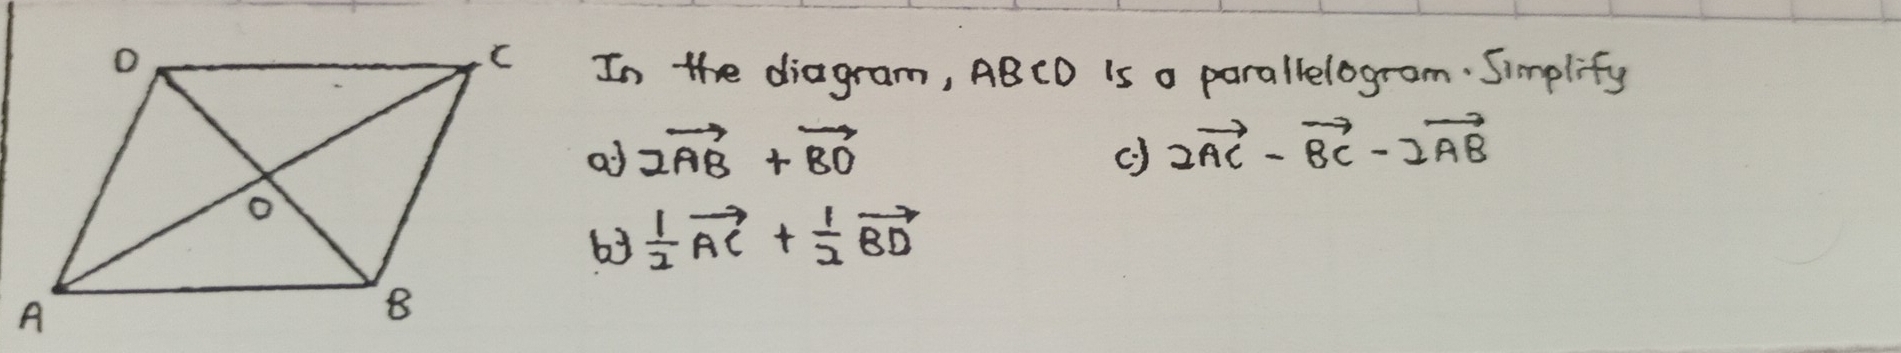 D C In the diagram, ABCD is a parallelogram. Simplify
a) 2AB + BD c) 2AC - BC - 2AB
O
b) 1/2 AC + 1/2 BD
A B